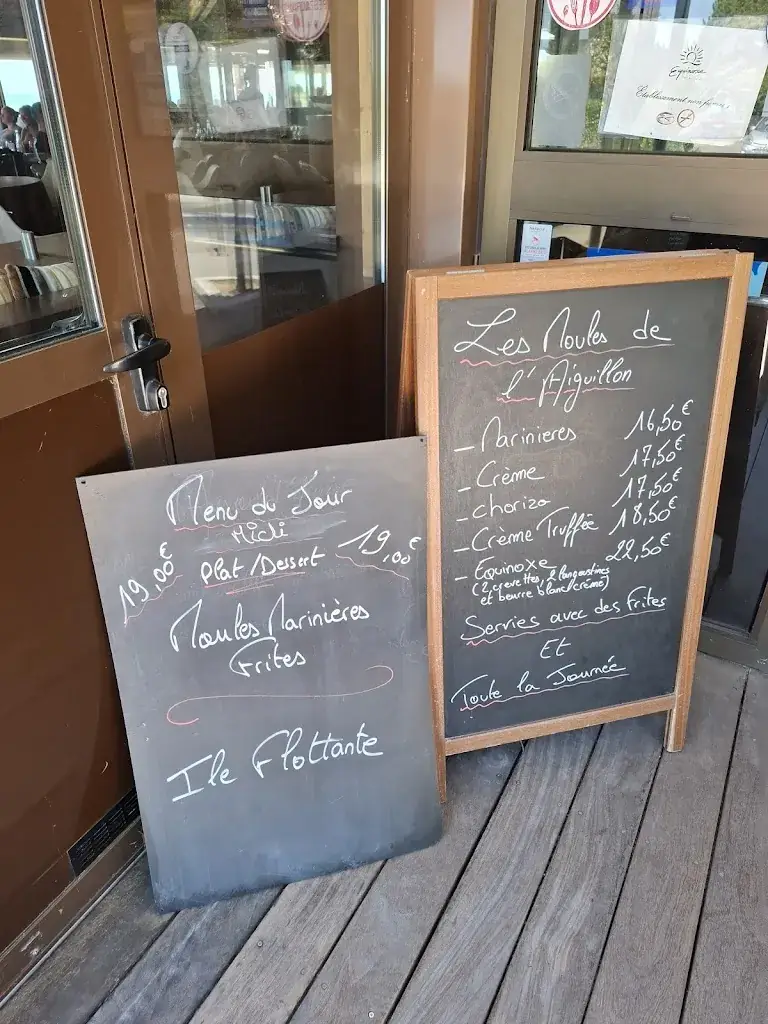 Menu du Jour
Midi
19,00€ Plat/Dessert 19,00€
Moules Marinières
Frites
Ile Flottante
Les Moules de
l'Aiguillon
- Marinieres 16,50€
- Crème 17,50€
- chorizo 17,50€
- Crème Truffée 18,50€
- Equinoxe 22,50€
(2 crevettes, 2 langoustines
et beurre blanc/crème)
Servies avec des frites
Et
Toute la Journée
Equinoxe
Etablissement non fumeur